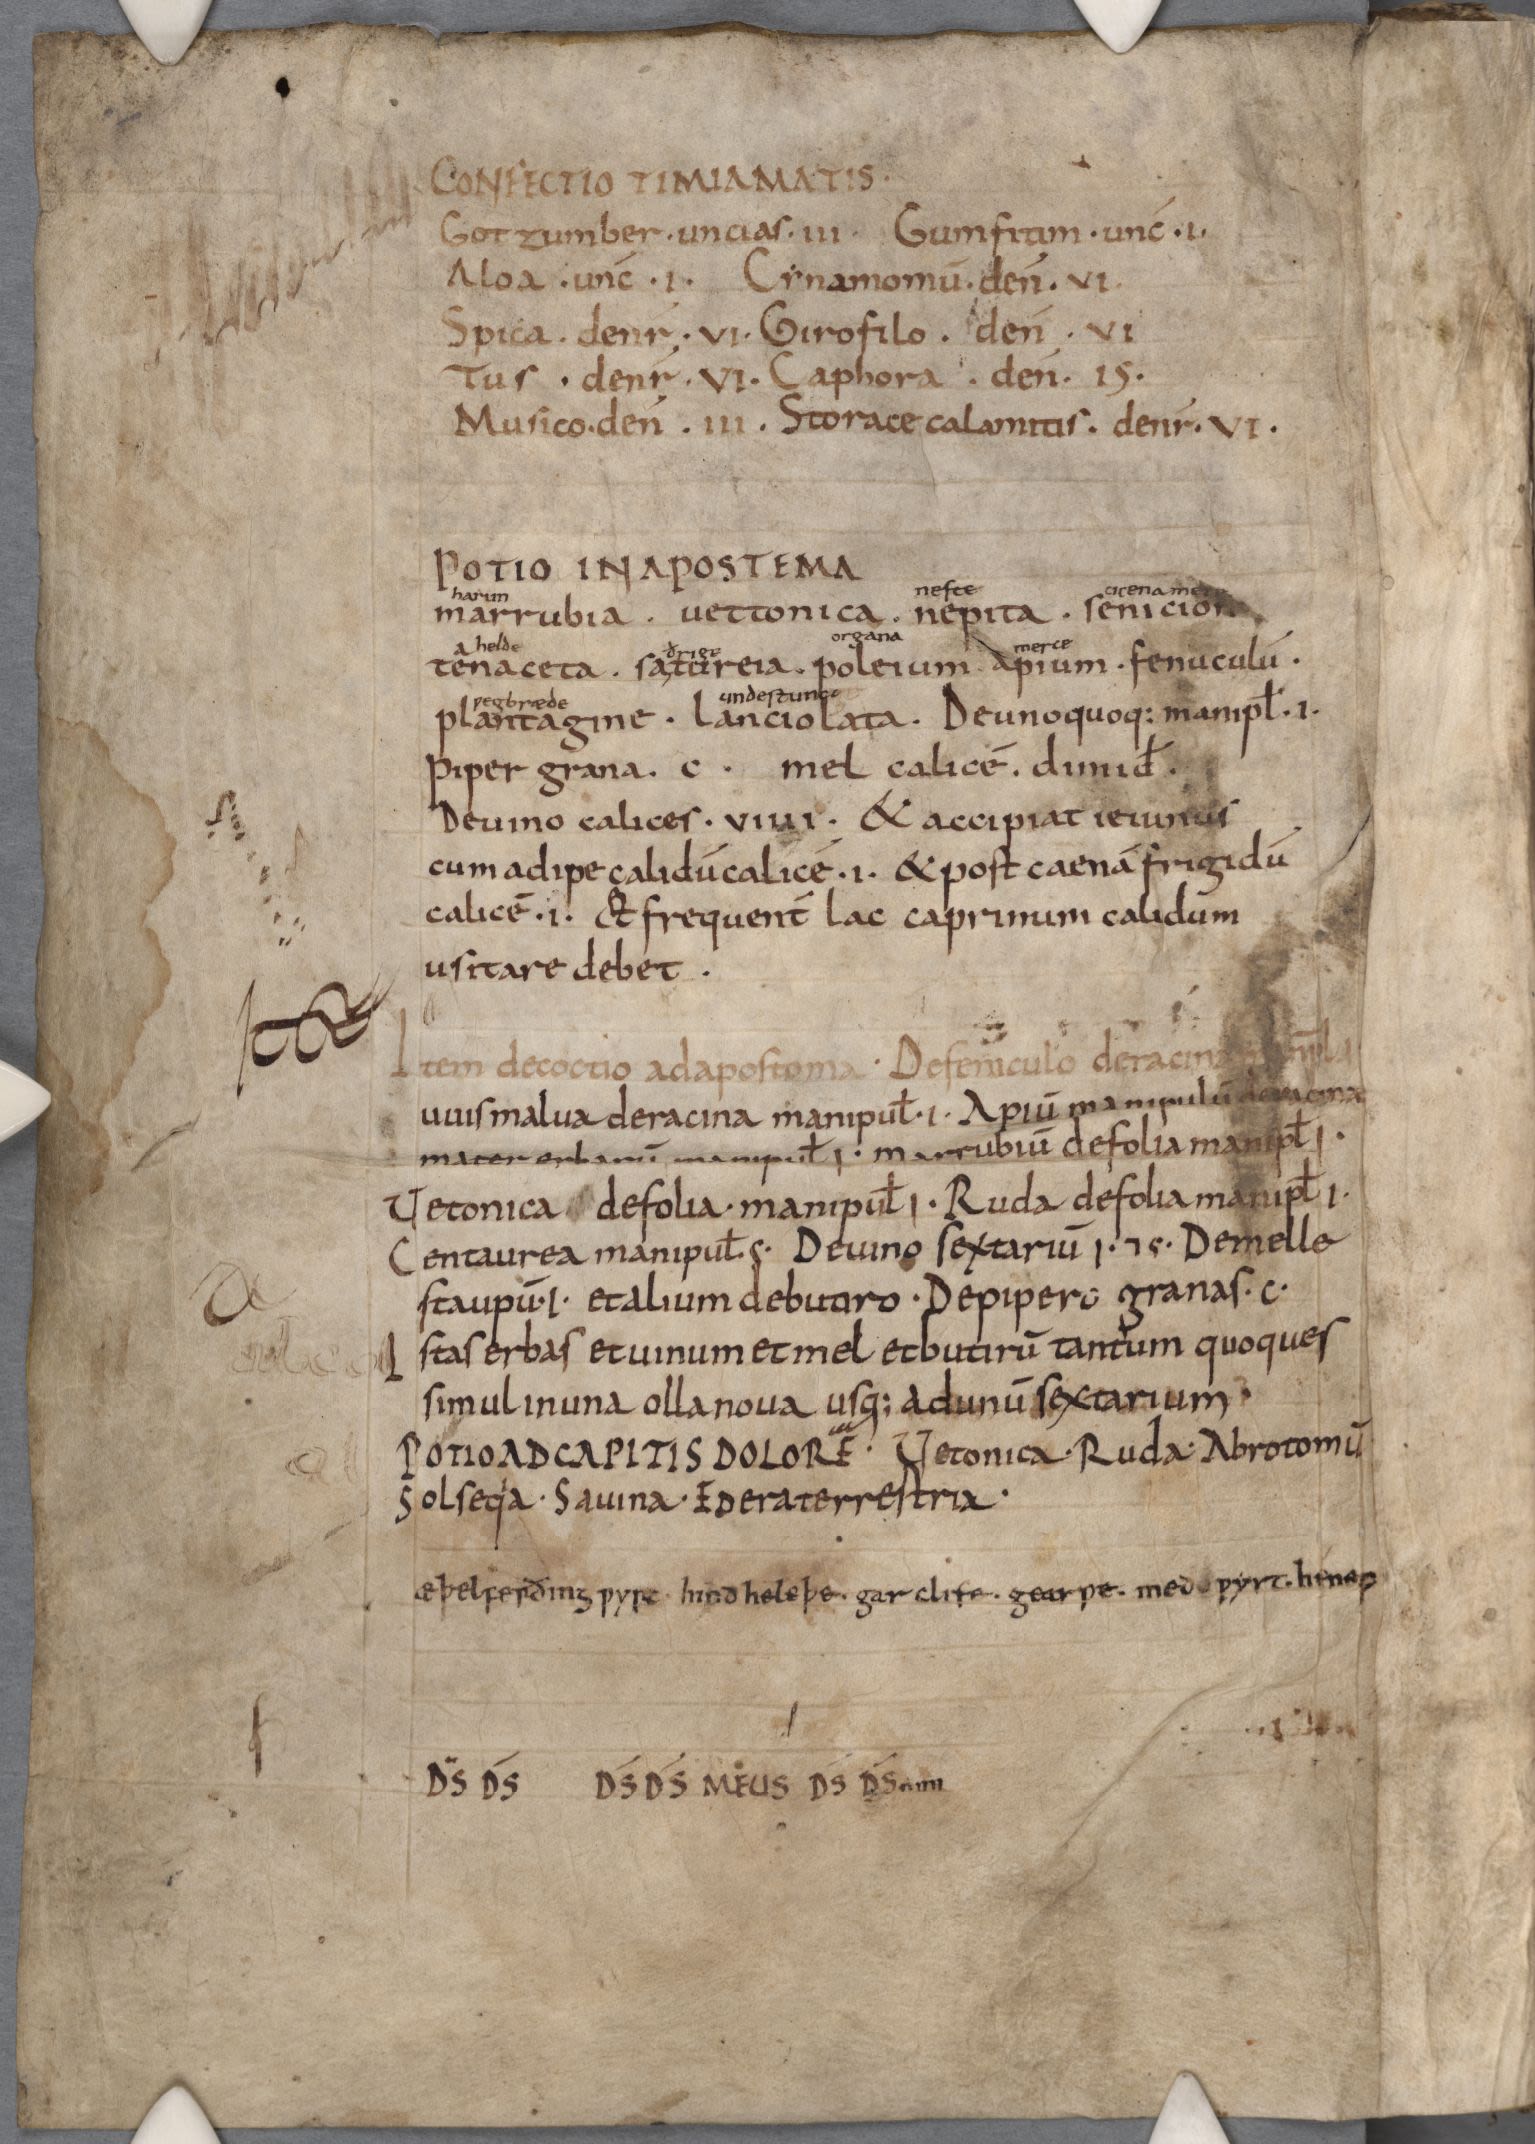 CONFECTIO TIMIAMATIS·
Gotzumber·uncias·III· Gumfitam·unc̄·I·
Aloa·unc̄·I· Cinamomū·deñ·VI·
Spica·denr̄·VI·Girofilo·deñ·VI
Tus·denr̄·VI·Caphora·deñ·IS·
Musico·deñ·III·Storace calamitis·denr̄·VI·
POTIO IN APOSTEMA
harun nefte
marrubia · uettonica · nepita · senicion
helde organa merce
tenaceta · satureia · poleium apium · fenuculū·
ƿegbrǣde
plantagine · Lanciolata · De unoquoq: manipł·I·
piper grana · c · mel calicē · dimid̄·
De uino calices · VIIII · & accipiat ieiunus
cum adipe calidū calicē·I· & post caenā frigidū
calicē·I· Et frequent̄ lac caprinum calidum
usitare debet ·
Item decoctio ad apostoma · De feniculo de racina
uuismalua de racina manipuł·I· Apiū manipulū de racina
mater erbarū manipuł I· marrubiū de folia manipł I·
Uetonica de folia·manipuł I· Ruda de folia manipł I·
Centaurea manipuł·S· De uino sextariū I·⁊S· De melle
staupū·I· et alium de butiro · De pipero granas·c·
Istas erbas et uinum et mel et butirū tantum quoques
simul in una olla noua usq; ad unū sextarium·
POTIO AD CAPITIS DOLORĒ· Uetonica·Ruda·Abrotomū
Solseq̇a·Sauina·Edera terrestria·
æþelferðingƿyrt hindheleþe·garclife·gearƿe·medoƿyrt·
DS̄ DS̄ DS̄ DS̄ MEUS DS̄ DS̄